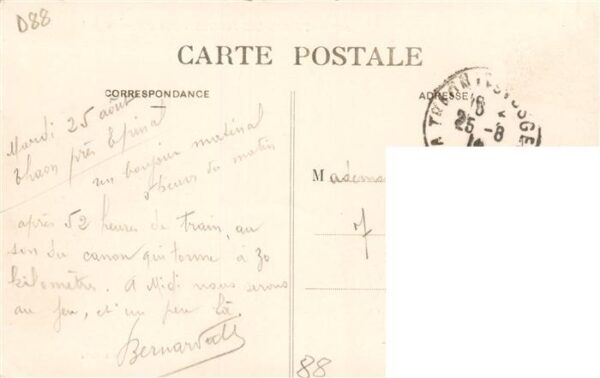 D88
CARTE POSTALE
CORRESPONDANCE
ADRESSE
THAON (VOSGE
18
25-8
14
Mardi 25 août
Thaon près Epinal
un bonjour matinal
5 heures du matin
après 52 heures de train, au
son du canon qui tonne à 30
kilomètres. A Midi nous serons
au feu, et un peu là.
Mademo
88